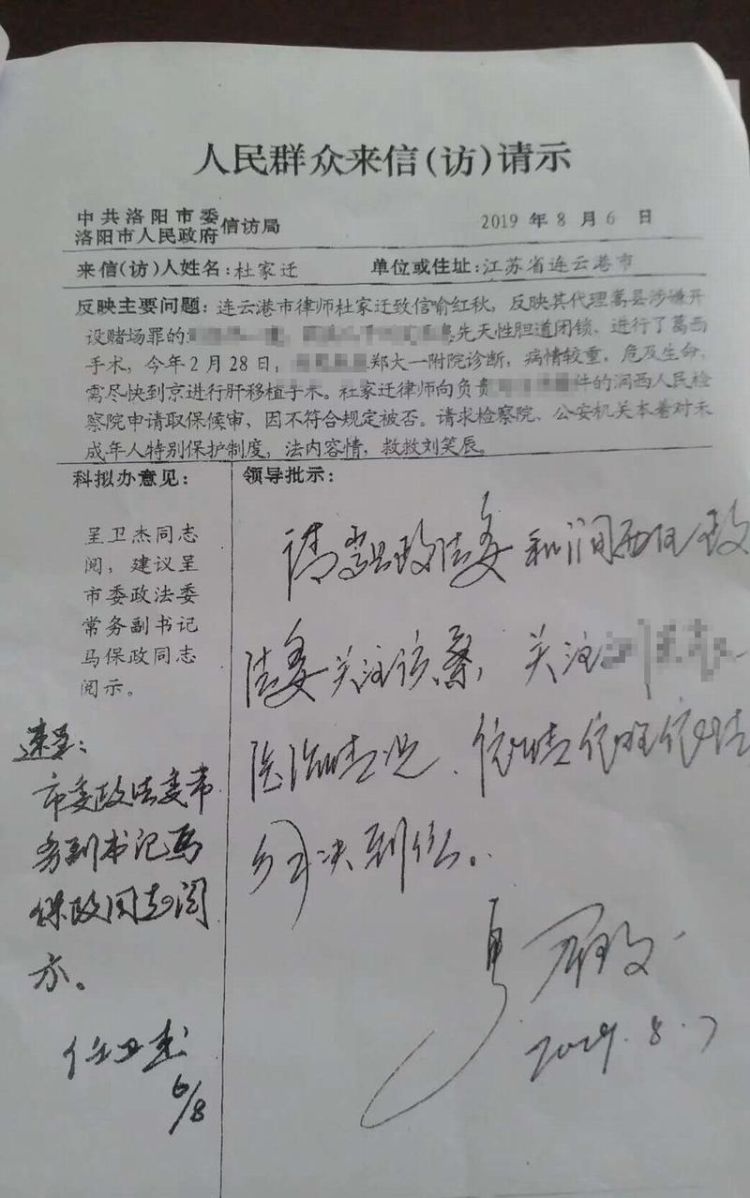 人民群众来信(访)请示
中共洛阳市委
洛阳市人民政府 信访局
2019 年 8 月 6 日
来信(访)人姓名:杜家迁 单位或住址:江苏省连云港市
反映主要问题:连云港市律师杜家迁致信喻红秋,反映其代理嵩县涉嫌开
设赌场罪的 先天性胆道闭锁、进行了葛西
手术,今年2月28日, 郑大一附院诊断,病情较重,危及生命,
需尽快到京进行肝移植手术。杜家迁律师向负责 件的涧西人民检
察院申请取保候审,因不符合规定被否。请求检察院、公安机关本着对未
成年人特别保护制度,法内容情,救救刘笑辰。
科拟办意见:
呈卫杰同志
阅,建议呈
市委政法委
常务副书记
马保政同志
阅示。
速呈:
市委政法委常
务副书记马
保政同志阅
示。
任卫杰
6/8
领导批示:
请嵩县政法委和涧西区政
法委关注该案,关注
医治情况、依法依规依情
决到位。
2019.8.7